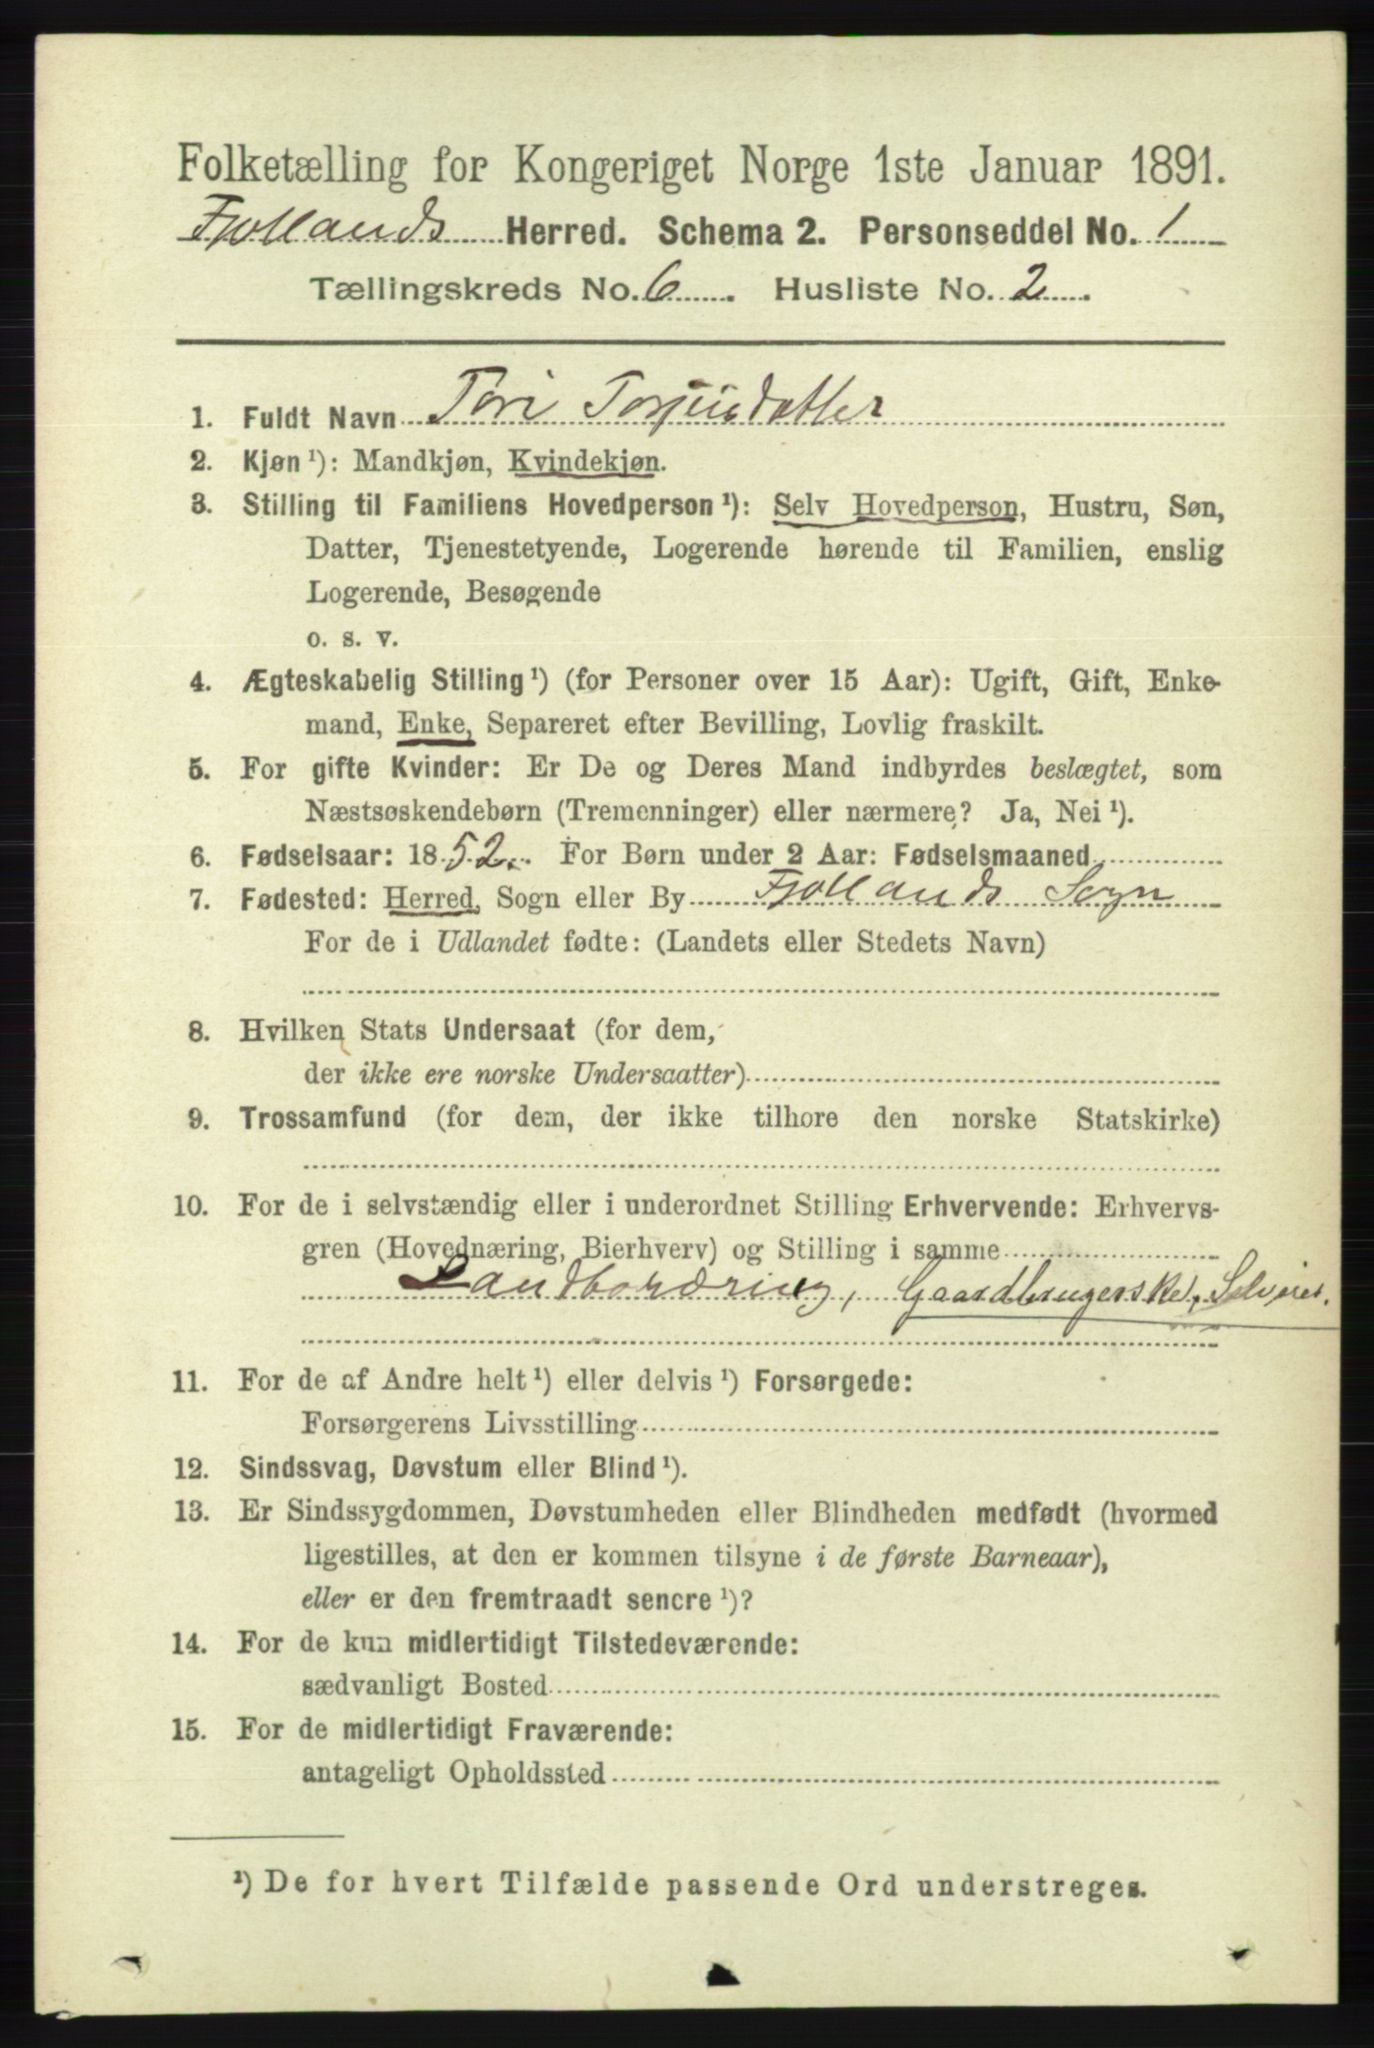 Folketælling for Kongeriget Norge 1ste Januar 1891.
Fjotlands Herred. Schema 2. Personseddel No. 1
Tællingskreds No. 6 . Husliste No. 2 .
1. Fuldt Navn Tori Torjusdatter
2. Kjøn ¹): Mandkjøn, Kvindekjøn.
3. Stilling til Familiens Hovedperson ¹): Selv Hovedperson, Hustru, Søn,
Datter, Tjenestetyende, Logerende hørende til Familien, enslig
Logerende, Besøgende
o. s. v.
4. Ægteskabelig Stilling ¹) (for Personer over 15 Aar): Ugift, Gift, Enke-
mand, Enke, Separeret efter Bevilling, Lovlig fraskilt.
5. For gifte Kvinder: Er De og Deres Mand indbyrdes beslægtet, som
Næstsøskendebørn (Tremenninger) eller nærmere? Ja, Nei ¹).
6. Fødselsaar: 1852. For Børn under 2 Aar: Fødselsmaaned
7. Fødested: Herred, Sogn eller By Fjotlands Sogn
For de i Udlandet fødte: (Landets eller Stedets Navn)
8. Hvilken Stats Undersaat (for dem,
der ikke ere norske Undersaatter)
9. Trossamfund (for dem, der ikke tilhøre den norske Statskirke)
10. For de i selvstændig eller i underordnet Stilling Erhvervende: Erhvervs-
gren (Hovednæring, Bierhverv) og Stilling i samme
Landbordring, Gaardbrugerske, Selveier.
11. For de af Andre helt ¹) eller delvis ¹) Forsørgede:
Forsørgerens Livsstilling
12. Sindssvag, Døvstum eller Blind ¹).
13. Er Sindssygdommen, Døvstumheden eller Blindheden medfødt (hvormed
ligestilles, at den er kommen tilsyne i de første Barneaar),
eller er den fremtraadt senere ¹)?
14. For de kun midlertidigt Tilstedeværende:
sædvanligt Bosted
15. For de midlertidigt Fraværende:
antageligt Opholdssted
¹) De for hvert Tilfælde passende Ord understreges.